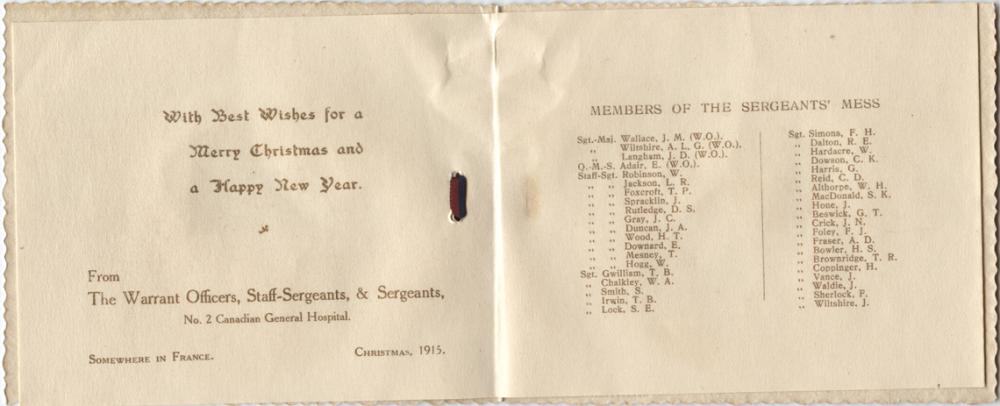 With Best Wishes for a
Merry Christmas and
a Happy New Year.
From
The Warrant Officers, Staff-Sergeants, & Sergeants,
No. 2 Canadian General Hospital.
Somewhere in France.
Christmas, 1915.
MEMBERS OF THE SERGEANTS' MESS
Sgt.-Maj. Wallace, J. M. (W.O.).
„ Wiltshire, A. L. G. (W.O.).
„ Langham, J. D. (W.O.).
Q.-M.-S. Adair, E. (W.O.).
Staff-Sgt. Robinson, W.
„ „ Jackson, L. R.
„ „ Foxcroft, T. P.
„ „ Spracklin, J.
„ „ Rutledge, D. S.
„ „ Gray, J. C.
„ „ Duncan, J. A.
„ „ Wood, H. T.
„ „ Downard, E.
„ „ Mesney, T.
„ „ Hogg, W.
Sgt. Gwilliam, T. B.
„ Chalkley, W. A.
„ Smith, S.
„ Irwin, T. B.
„ Lock, S. E.
Sgt. Simons, F. H.
„ Dalton, R. E.
„ Hardacre, W.
„ Dowson, C. K.
„ Harris, G.
„ Reid, C. D.
„ Althorpe, W. H.
„ MacDonald, S. K.
„ Hone, J.
„ Beswick, G. T.
„ Crick, J. N.
„ Foley, F. J.
„ Fraser, A. D.
„ Bowler, H. S.
„ Brownridge, T. R.
„ Coppinger, H.
„ Vance, J.
„ Waldie, J.
„ Sherlock, F.
„ Wiltshire, J.